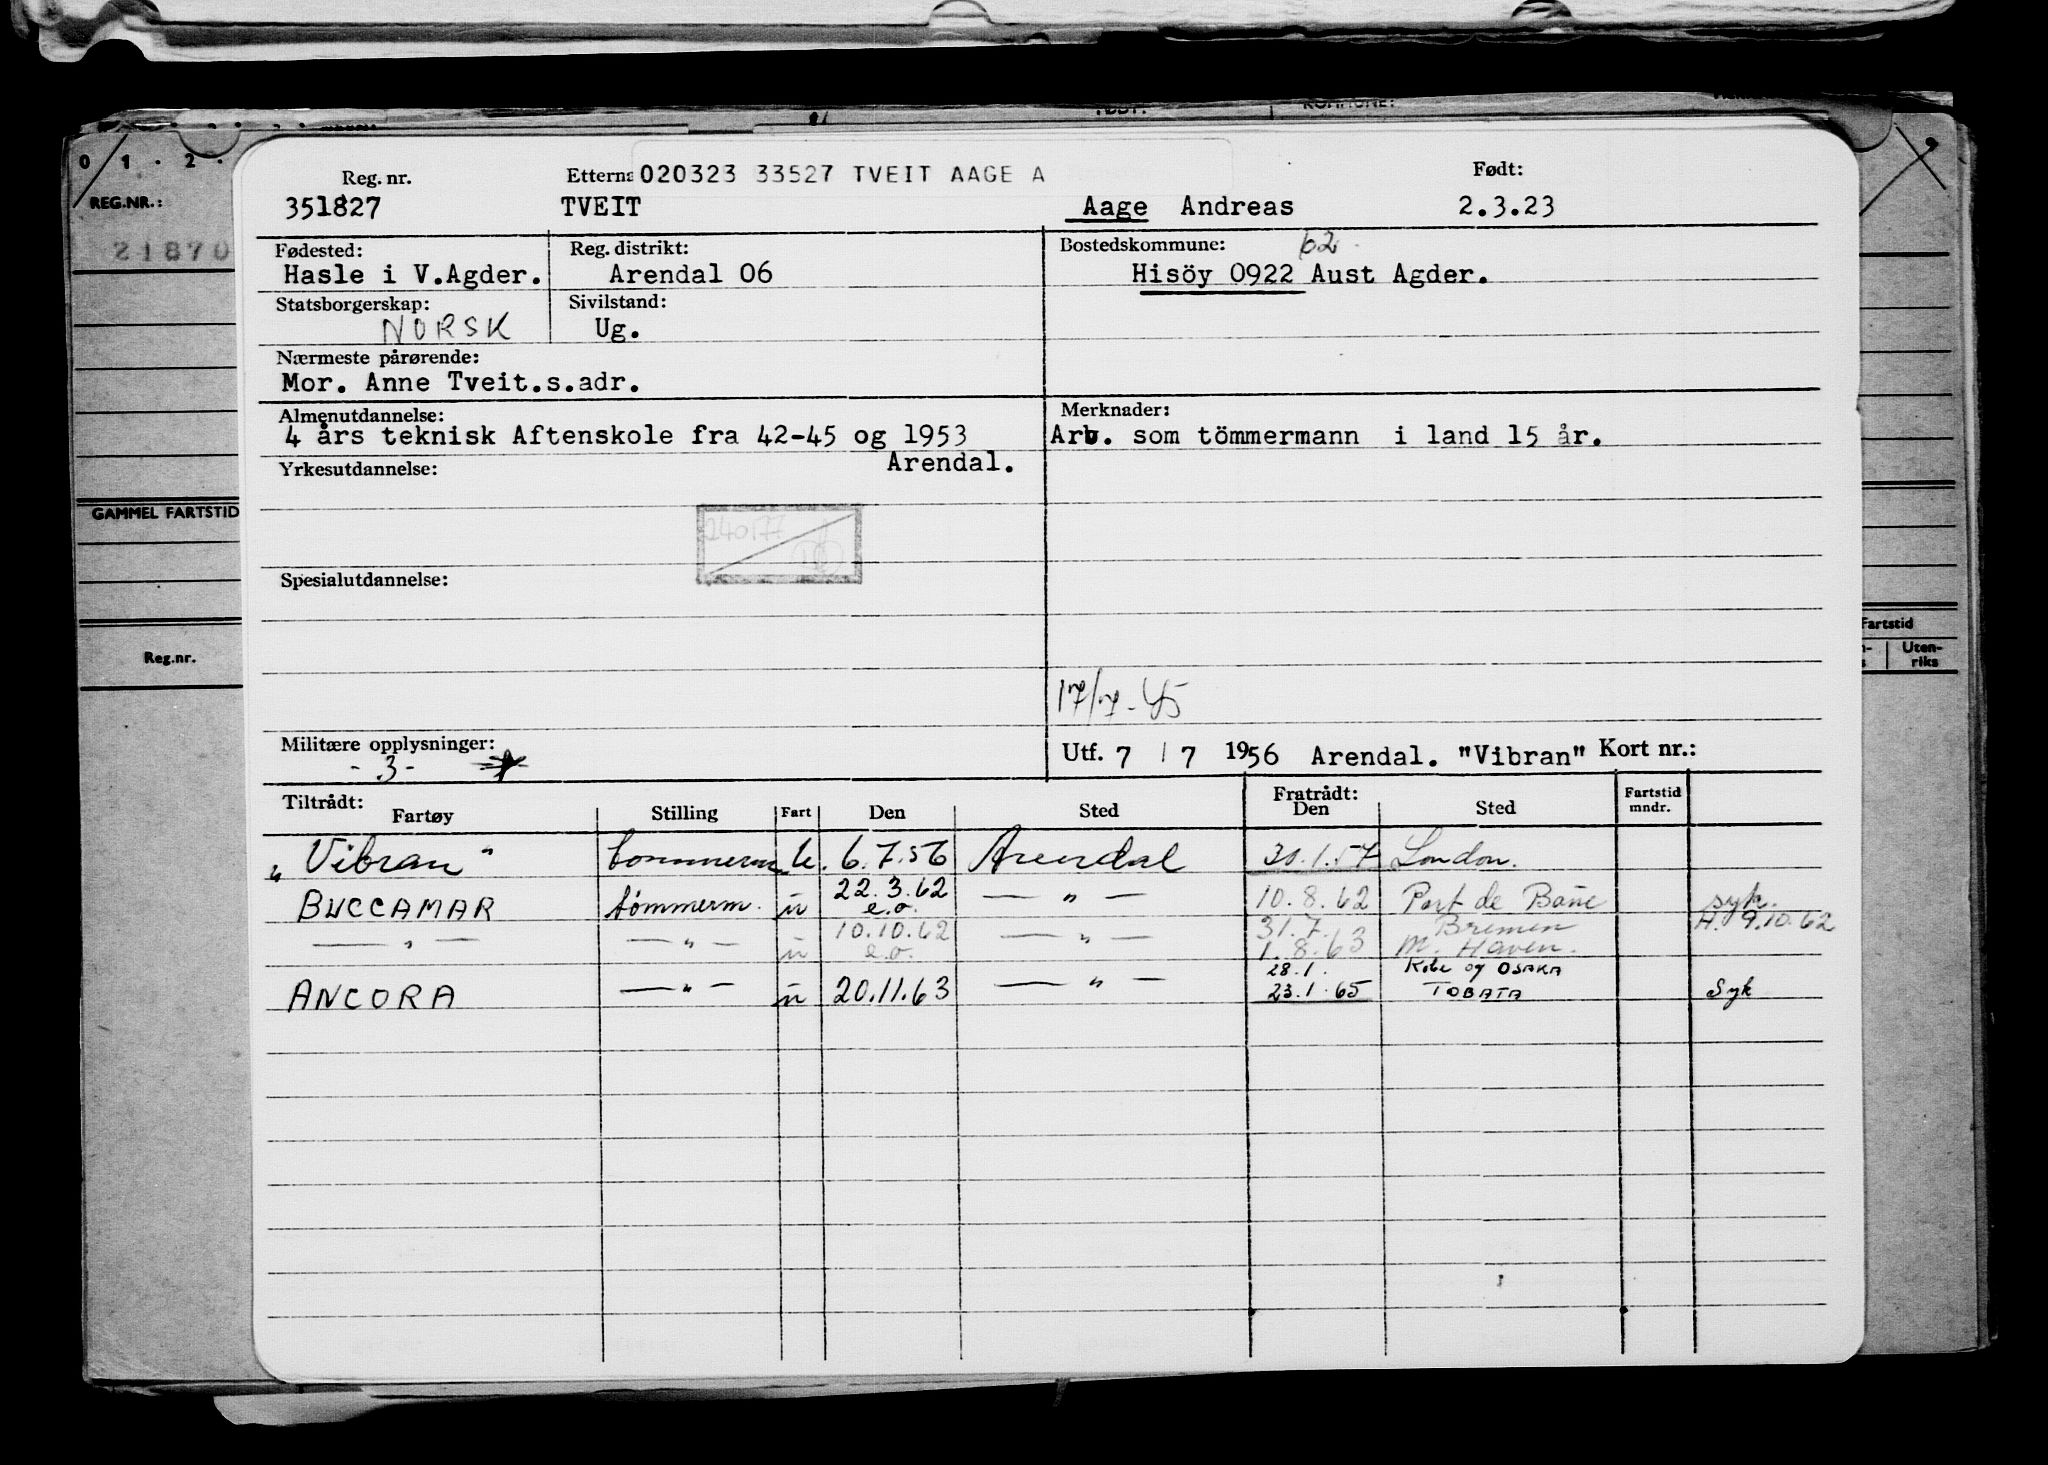 FØDT: KOMMUNE:
0 1 . 2 .
REG.NR.:
21870
GAMMEL FARTSTID
Reg.nr.
Fartstid
Uten-
riks
Reg. nr. Etterna 020323 33527 TVEIT AAGE A Født:
351827 TVEIT Aage Andreas 2.3.23
Fødested: Reg. distrikt: Bostedskommune: 62
Hasle i V.Agder. Arendal 06 Hisöy 0922 Aust Agder.
Statsborgerskap: Sivilstand:
NORSK Ug.
Nærmeste pårørende:
Mor. Anne Tveit.s.adr.
Almenutdannelse: Merknader:
4 års teknisk Aftenskole fra 42-45 og 1953 Arb. som tömmermann i land 15 år.
Yrkesutdannelse: Arendal.
240177
Spesialutdannelse:
17/7-45
Militære opplysninger: Utf. 7 / 7 1956 Arendal. "Vibran" Kort nr.:
- 3 -
Tiltrådt: Fratrådt: Fartstid
Fartøy Stilling Fart Den Sted Den Sted mndr.
"Vibran" tømmerm u. 6.7.56 Arendal 30.1.57 London.
BUCCAMAR tømmerm. u 22.3.62 — " — 10.8.62 Port de Bouc syk.
e.o. H. 9.10.62
— " — — " — u 10.10.62 — " — 31.7. Bremen
e.o. 1.8.63 M. Haven.
28.1. Kobe og OSAKA
ANCORA — " — u 20.11.63 — " — 23.1.65 TOBATA Syk